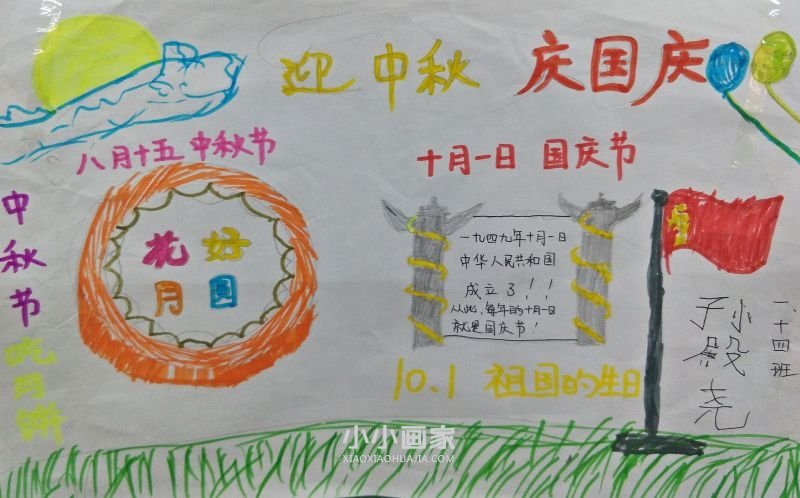 迎中秋 庆国庆
八月十五 中秋节
十月一日 国庆节
中秋节
吃月饼
花好
月圆
一九四九年十月一日
中华人民共和国
成立了！！
从此，每年的十月一日
就是国庆节！
10.1 祖国的生日
一、十四班
孙殿尧
小小画家
XIAOXIAOHUAJIA.COM